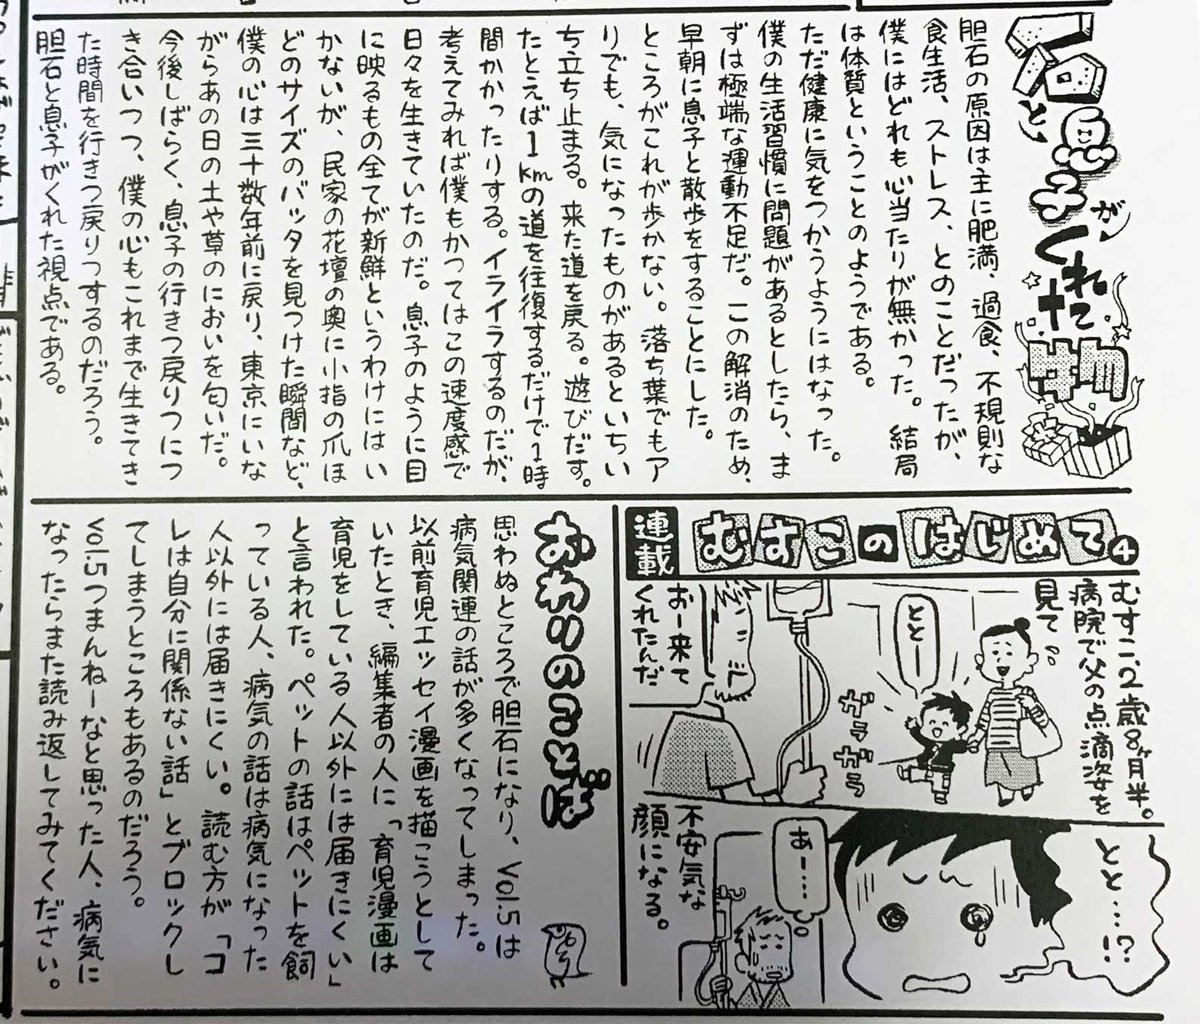 石と息子がくれた物
胆石の原因は主に肥満、過食、不規則な
食生活、ストレス、とのことだったが、
僕にはどれも心当たりが無かった。結局
は体質ということのようである。
ただ健康に気をつかうようにはなった。
僕の生活習慣に問題があるとしたら、ま
ずは極端な運動不足だ。この解消のため、
早朝に息子と散歩をすることにした。
ところがこれが歩かない。落ち葉でもア
リでも、気になったものがあるといちい
ち立ち止まる。来た道を戻る。遊びだす。
たとえば1kmの道を往復するだけで1時
間かかったりする。イライラするのだが、
考えてみれば僕もかつてはこの速度感で
日々を生きていたのだ。息子のように目
に映るもの全てが新鮮というわけにはい
かないが、民家の花壇の奥に小指の爪ほ
どのサイズのバッタを見つけた瞬間など、
僕の心は三十数年前に戻り、東京にいな
がらあの日の土や草のにおいを匂いだ。
今後しばらく、息子の行きつ戻りつにつ
き合いつつ、僕の心もこれまで生きてき
た時間を行きつ戻りつするのだろう。
胆石と息子がくれた視点である。
連載 むすこのはじめて④
むすこ、2歳8ヶ月半。
病院で父の点滴姿を
見て
ととー
ガラガラ
おー来て
くれたんだ
とと……!?
あー……
不安気な
顔になる。
おわりのことば
思わぬところで胆石になり、vol.5は
病気関連の話が多くなってしまった。
以前育児エッセイ漫画を描こうとして
いたとき、編集者の人に「育児漫画は
育児をしている人以外には届きにくい」
と言われた。ペットの話はペットを飼
っている人、病気の話は病気になった
人以外には届きにくい。読む方が「コ
レは自分に関係ない話」とブロックし
てしまうところもあるのだろう。
vol.5つまんねーなと思った人、病気に
なったらまた読み返してみてください。